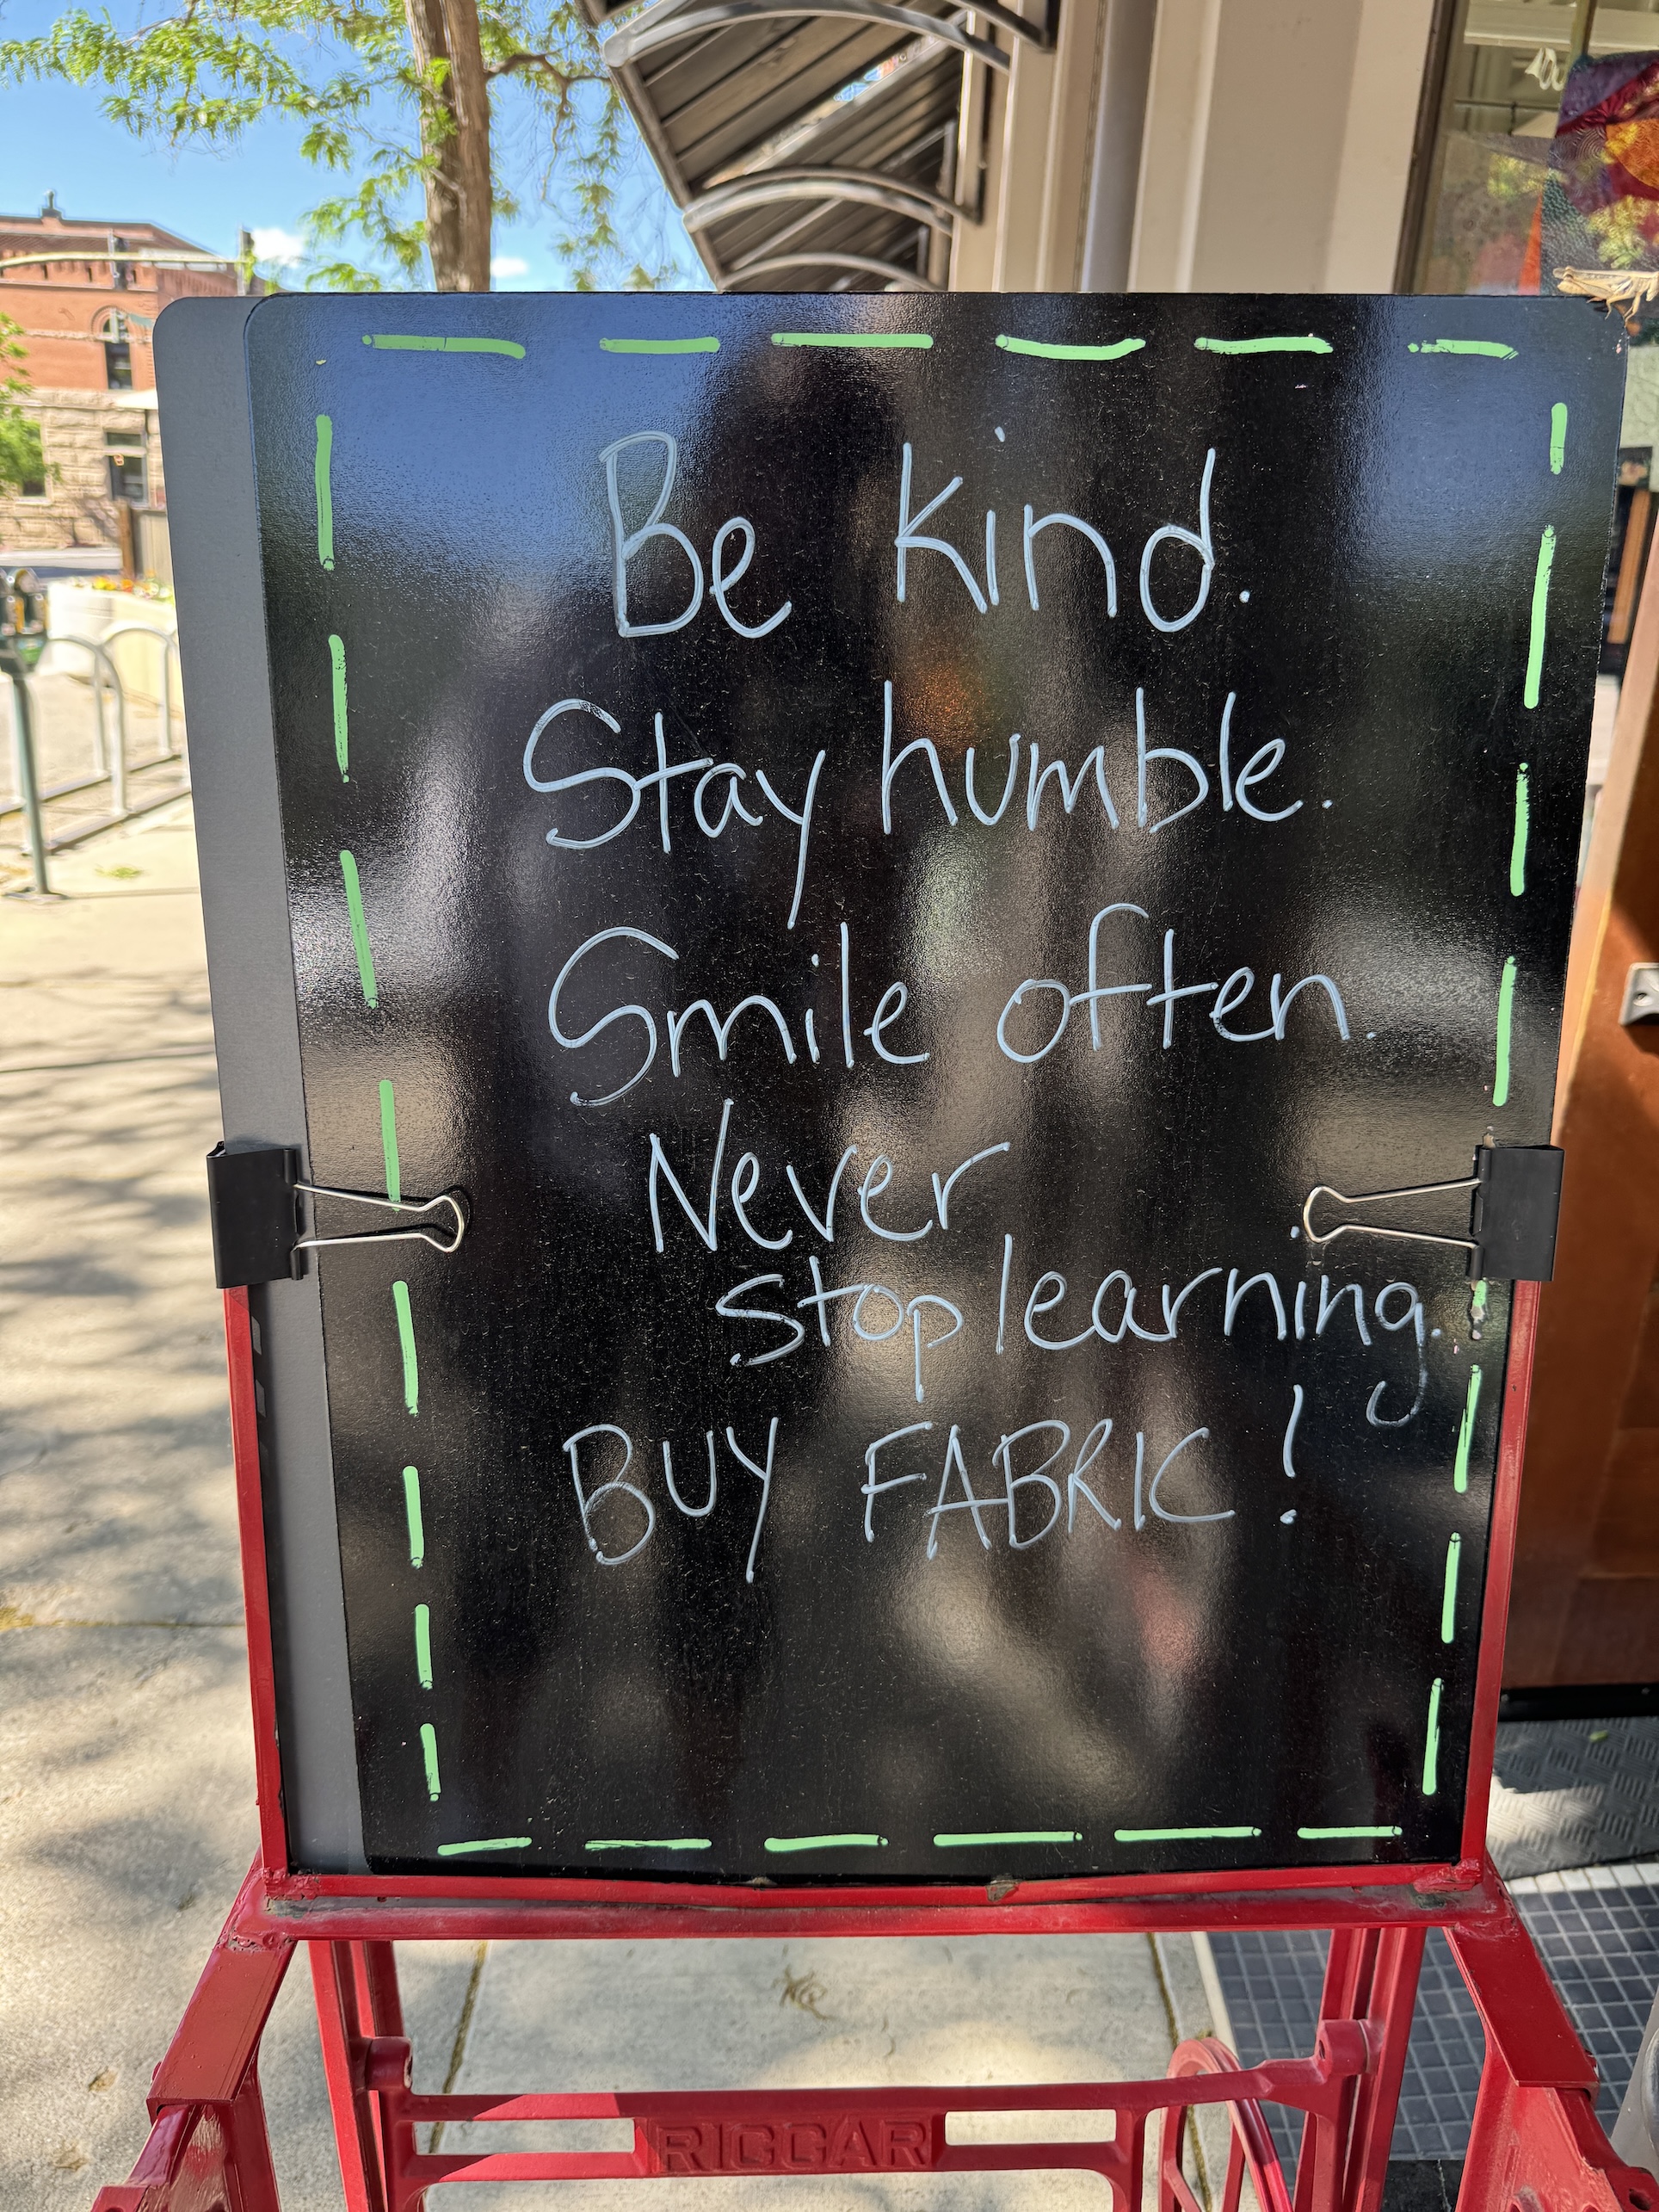 Be kind.
Stay humble.
Smile often.
Never
stop learning.
BUY FABRIC!
RICCAR